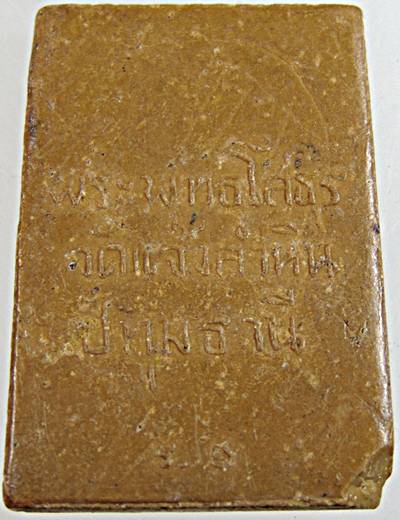 พระพุทธโสธร
วัดแจ้งลำหิน
ปทุมธานี